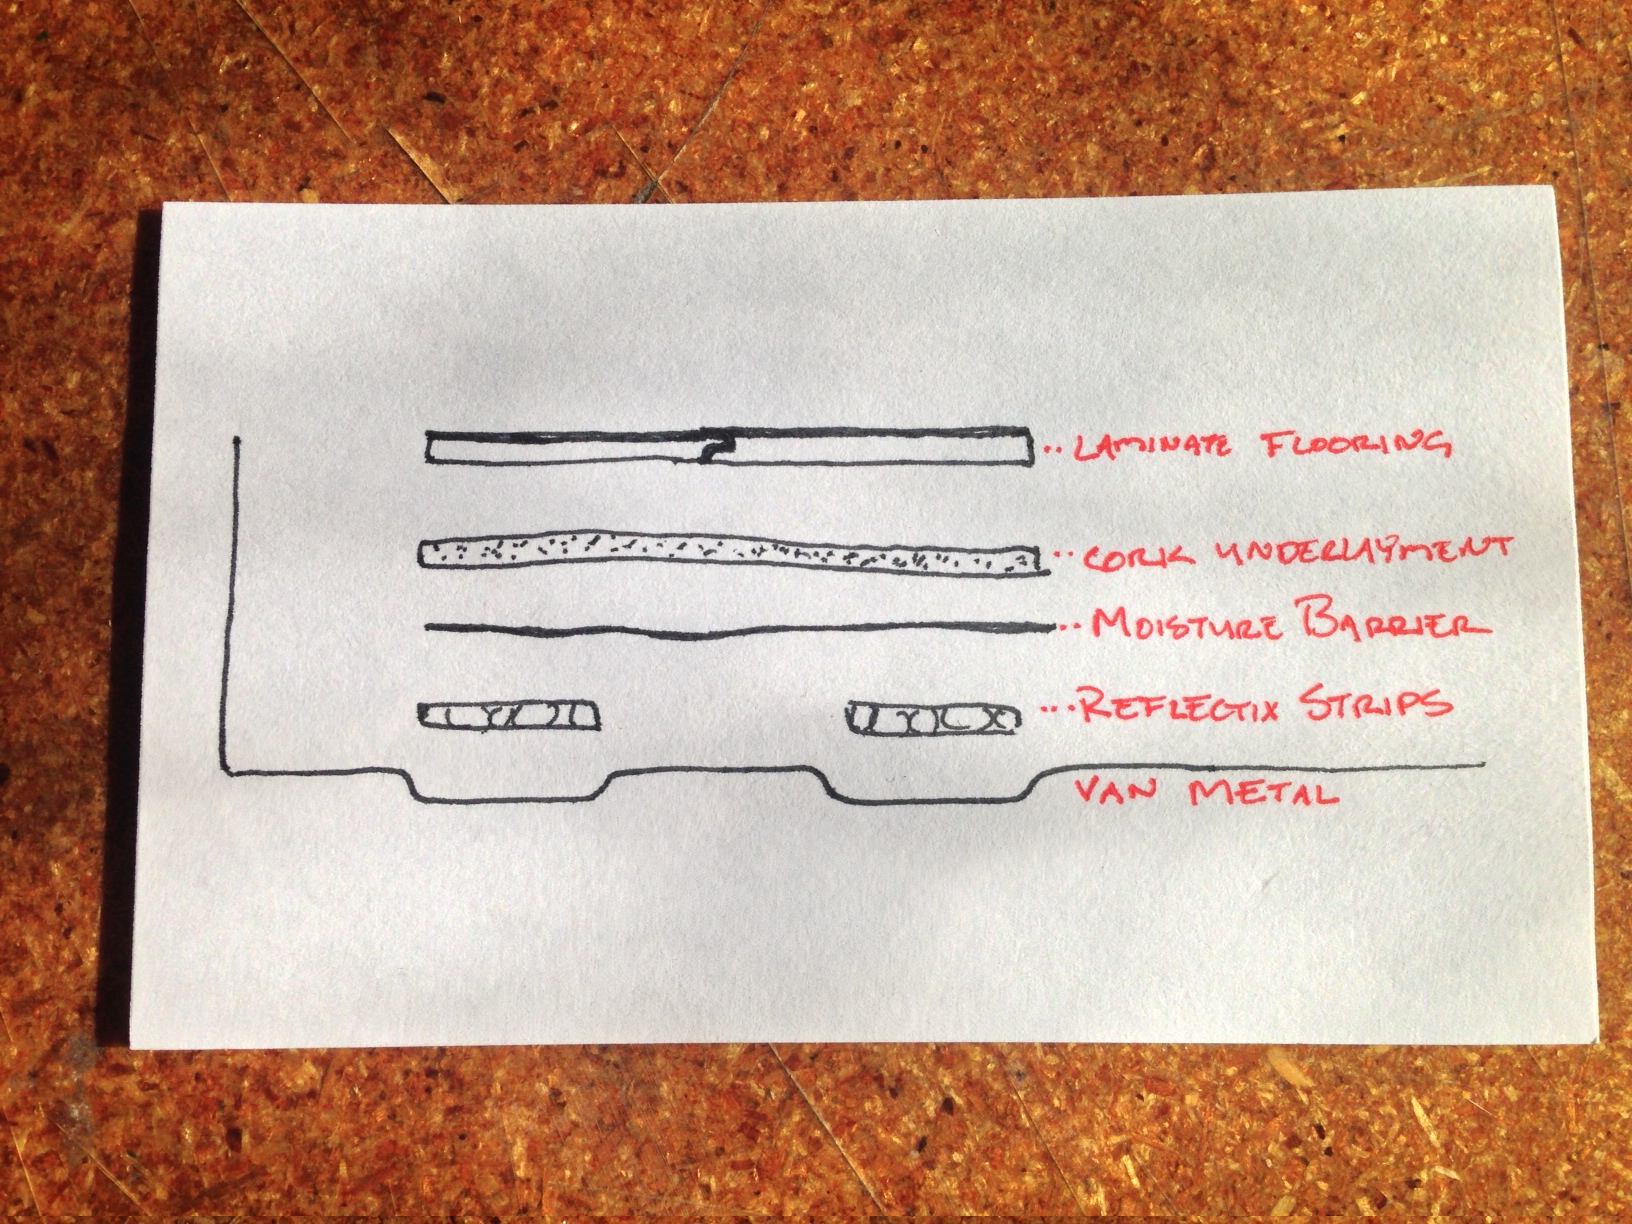 LAMINATE FLOORING
CORK UNDERLAYMENT
MOISTURE BARRIER
REFLECTIX STRIPS
VAN METAL